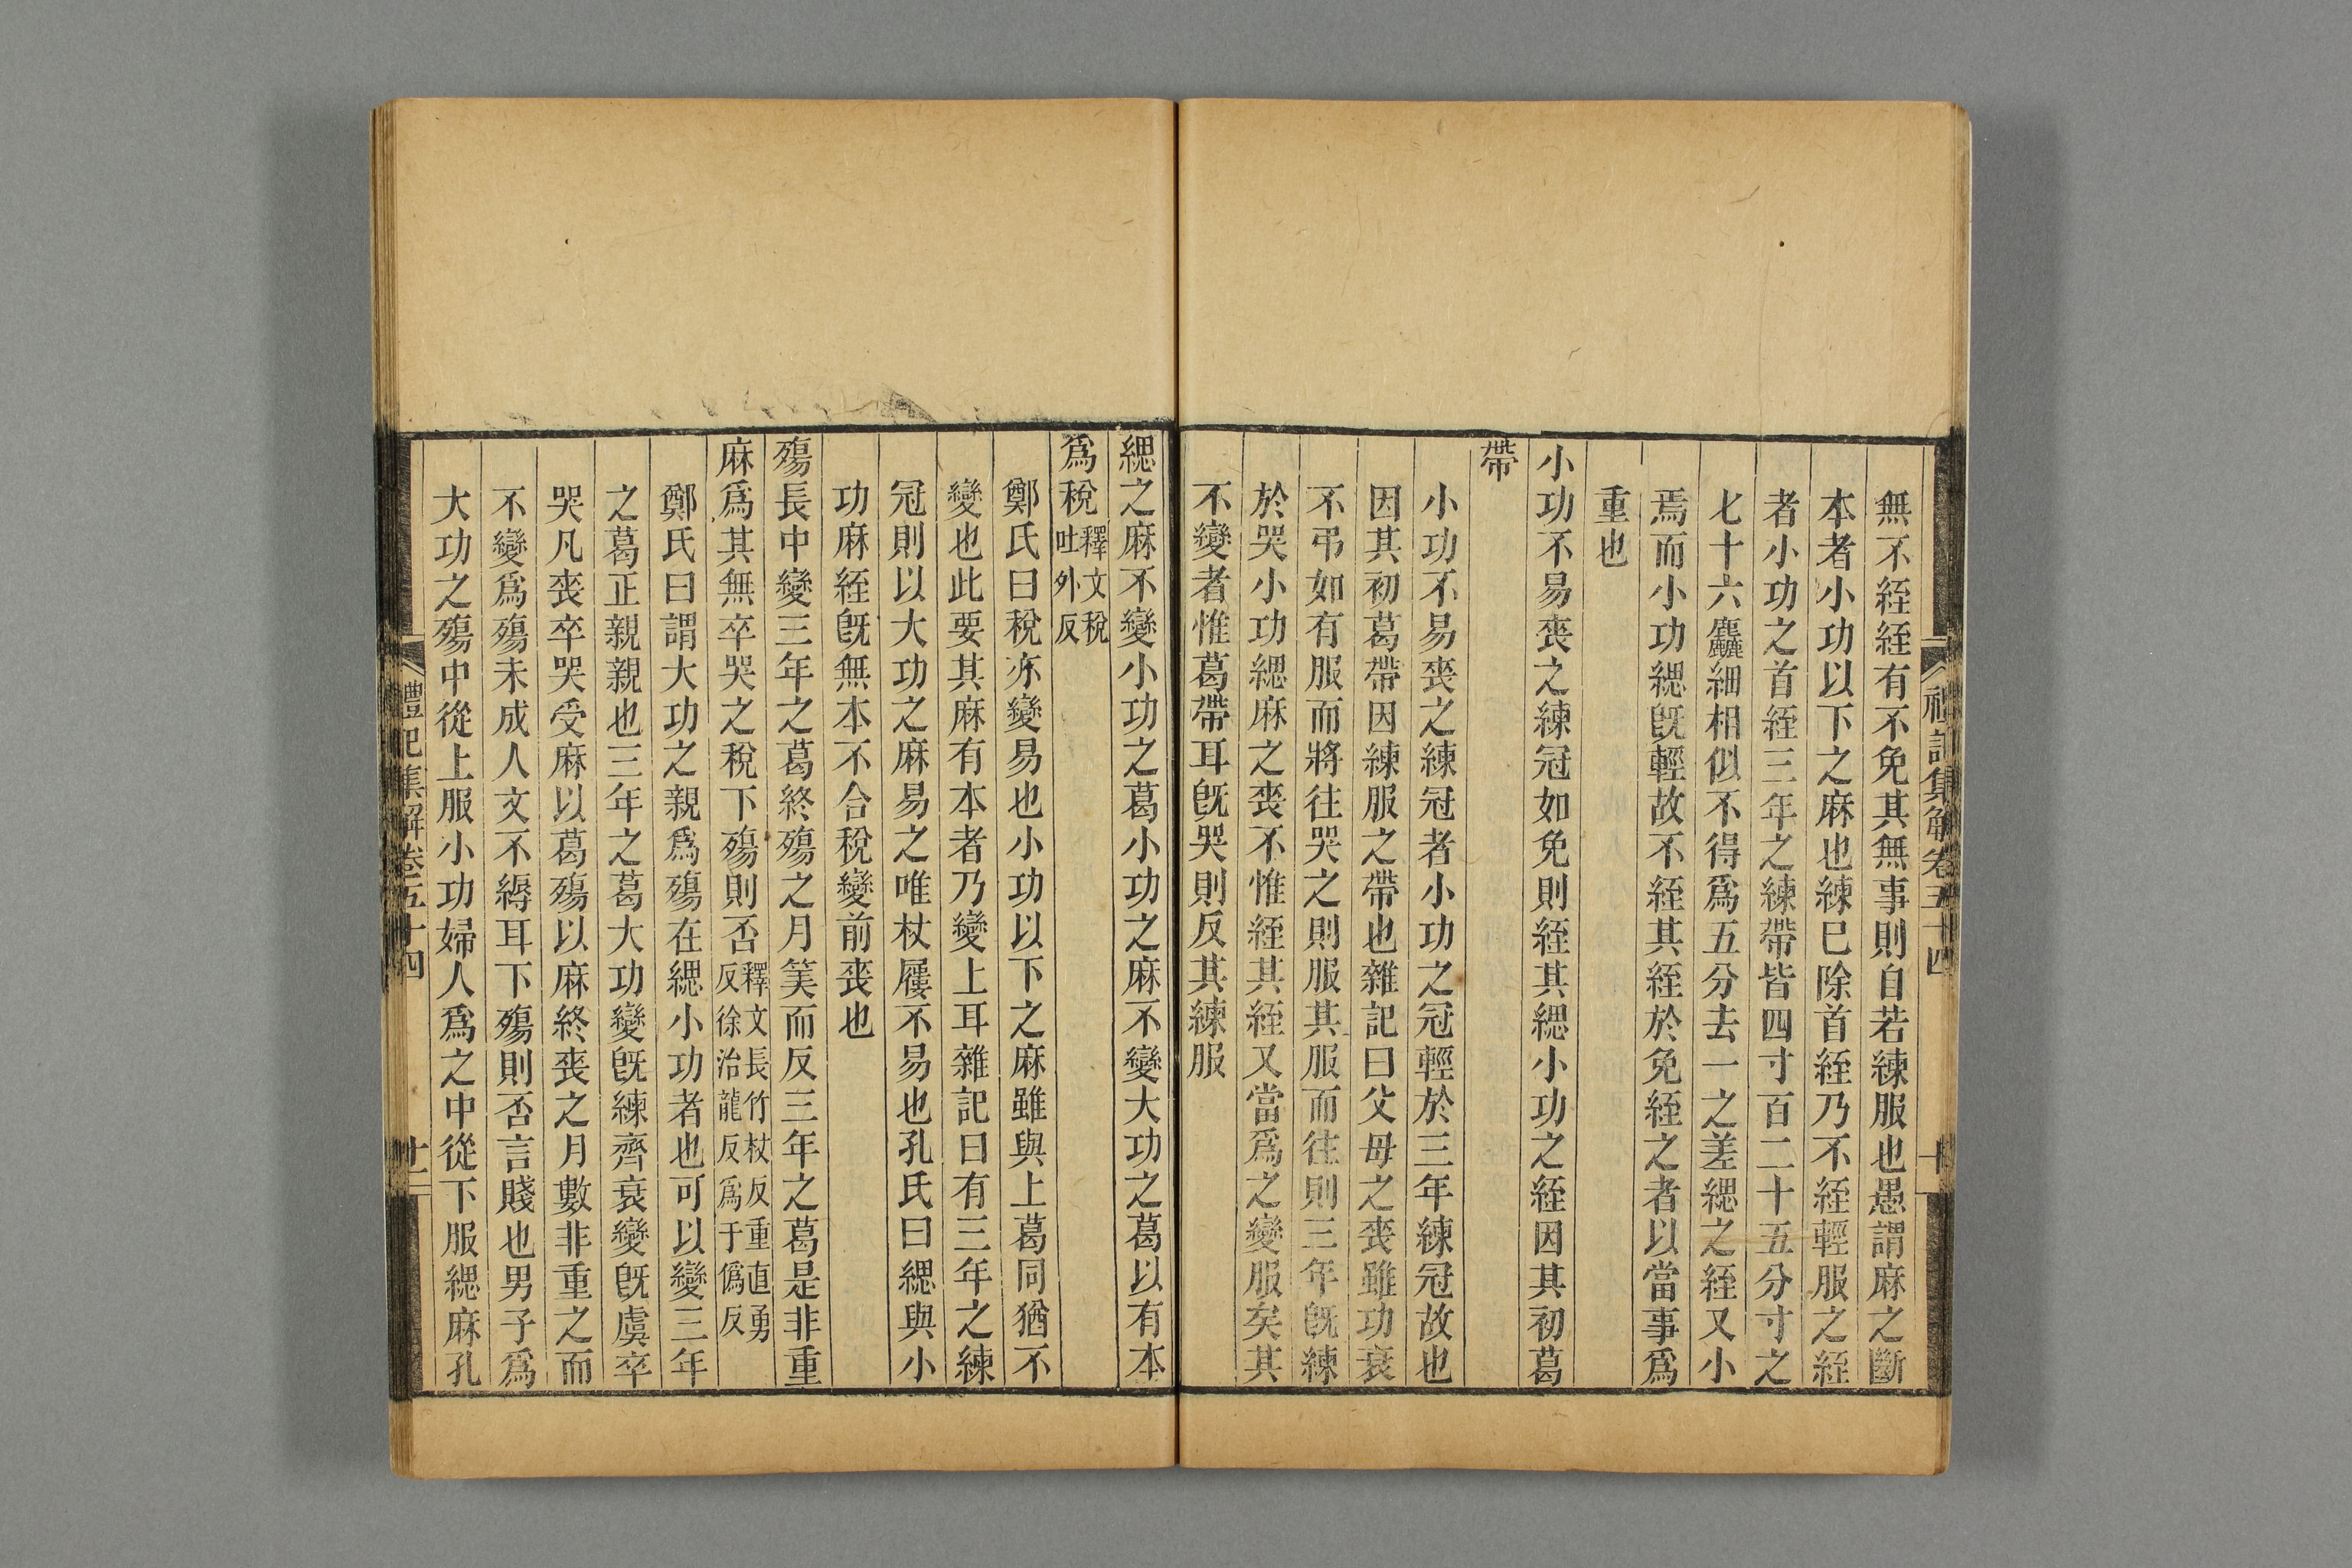 無不絰絰有不免其無事則自若練服也愚謂麻之斷
本者小功以下之麻也練巳除首絰乃不絰輕服之絰
者小功之首絰三年之練帶皆四寸百二十五分寸之
七十六麤細相似不得爲五分去一之差緦之絰又小
焉而小功緦旣輕故不絰其絰於免絰之者以當事爲
重也
小功不易喪之練冠如免則絰其緦小功之絰因其初葛
帶
小功不易喪之練冠者小功之冠輕於三年練冠故也
因其初葛帶因練服之帶也雜記曰父母之喪雖功衰
不弔如有服而將往哭之則服其服而往則三年旣練
於哭小功緦麻之喪不惟絰其絰又當爲之變服矣其
不變者惟葛帶耳旣哭則反其練服
禮記集解卷五十四
緦之麻不變小功之葛小功之麻不變大功之葛以有本
爲稅釋文稅吐外反
鄭氏曰稅亦變易也小功以下之麻雖與上葛同猶不
變也此要其麻有本者乃變上耳雜記曰有三年之練
冠則以大功之麻易之唯杖屨不易也孔氏曰緦與小
功麻絰旣無本不合稅變前喪也
殤長中變三年之葛終殤之月筭而反三年之葛是非重
麻爲其無卒哭之稅下殤則否釋文長竹杖反重直勇反徐治龍反爲于僞反
鄭氏曰謂大功之親爲殤在緦小功者也可以變三年
之葛正親親也三年之葛大功變旣練齊衰變旣虞卒
哭凡喪卒哭受麻以葛殤以麻終喪之月數非重之而
不變爲殤未成人文不縟耳下殤則否言賤也男子爲
大功之殤中從上服小功婦人爲之中從下服緦麻孔
禮記集解卷五十四
廿二